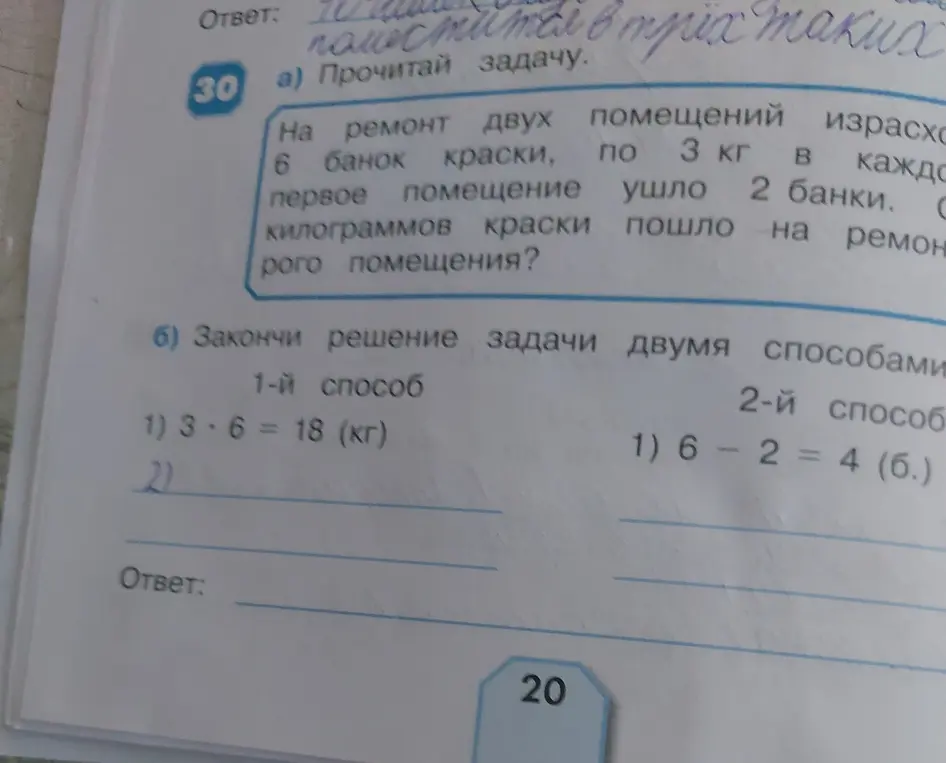 Ответ:
поместится в трёх таких
30 а) Прочитай задачу.
На ремонт двух помещений израсхо
6 банок краски, по 3 кг в каждо
первое помещение ушло 2 банки. С
килограммов краски пошло на ремон
рого помещения?
б) Закончи решение задачи двумя способами
1-й способ
2-й способ
1) 3 · 6 = 18 (кг)
1) 6 − 2 = 4 (б.)
2)
Ответ:
20